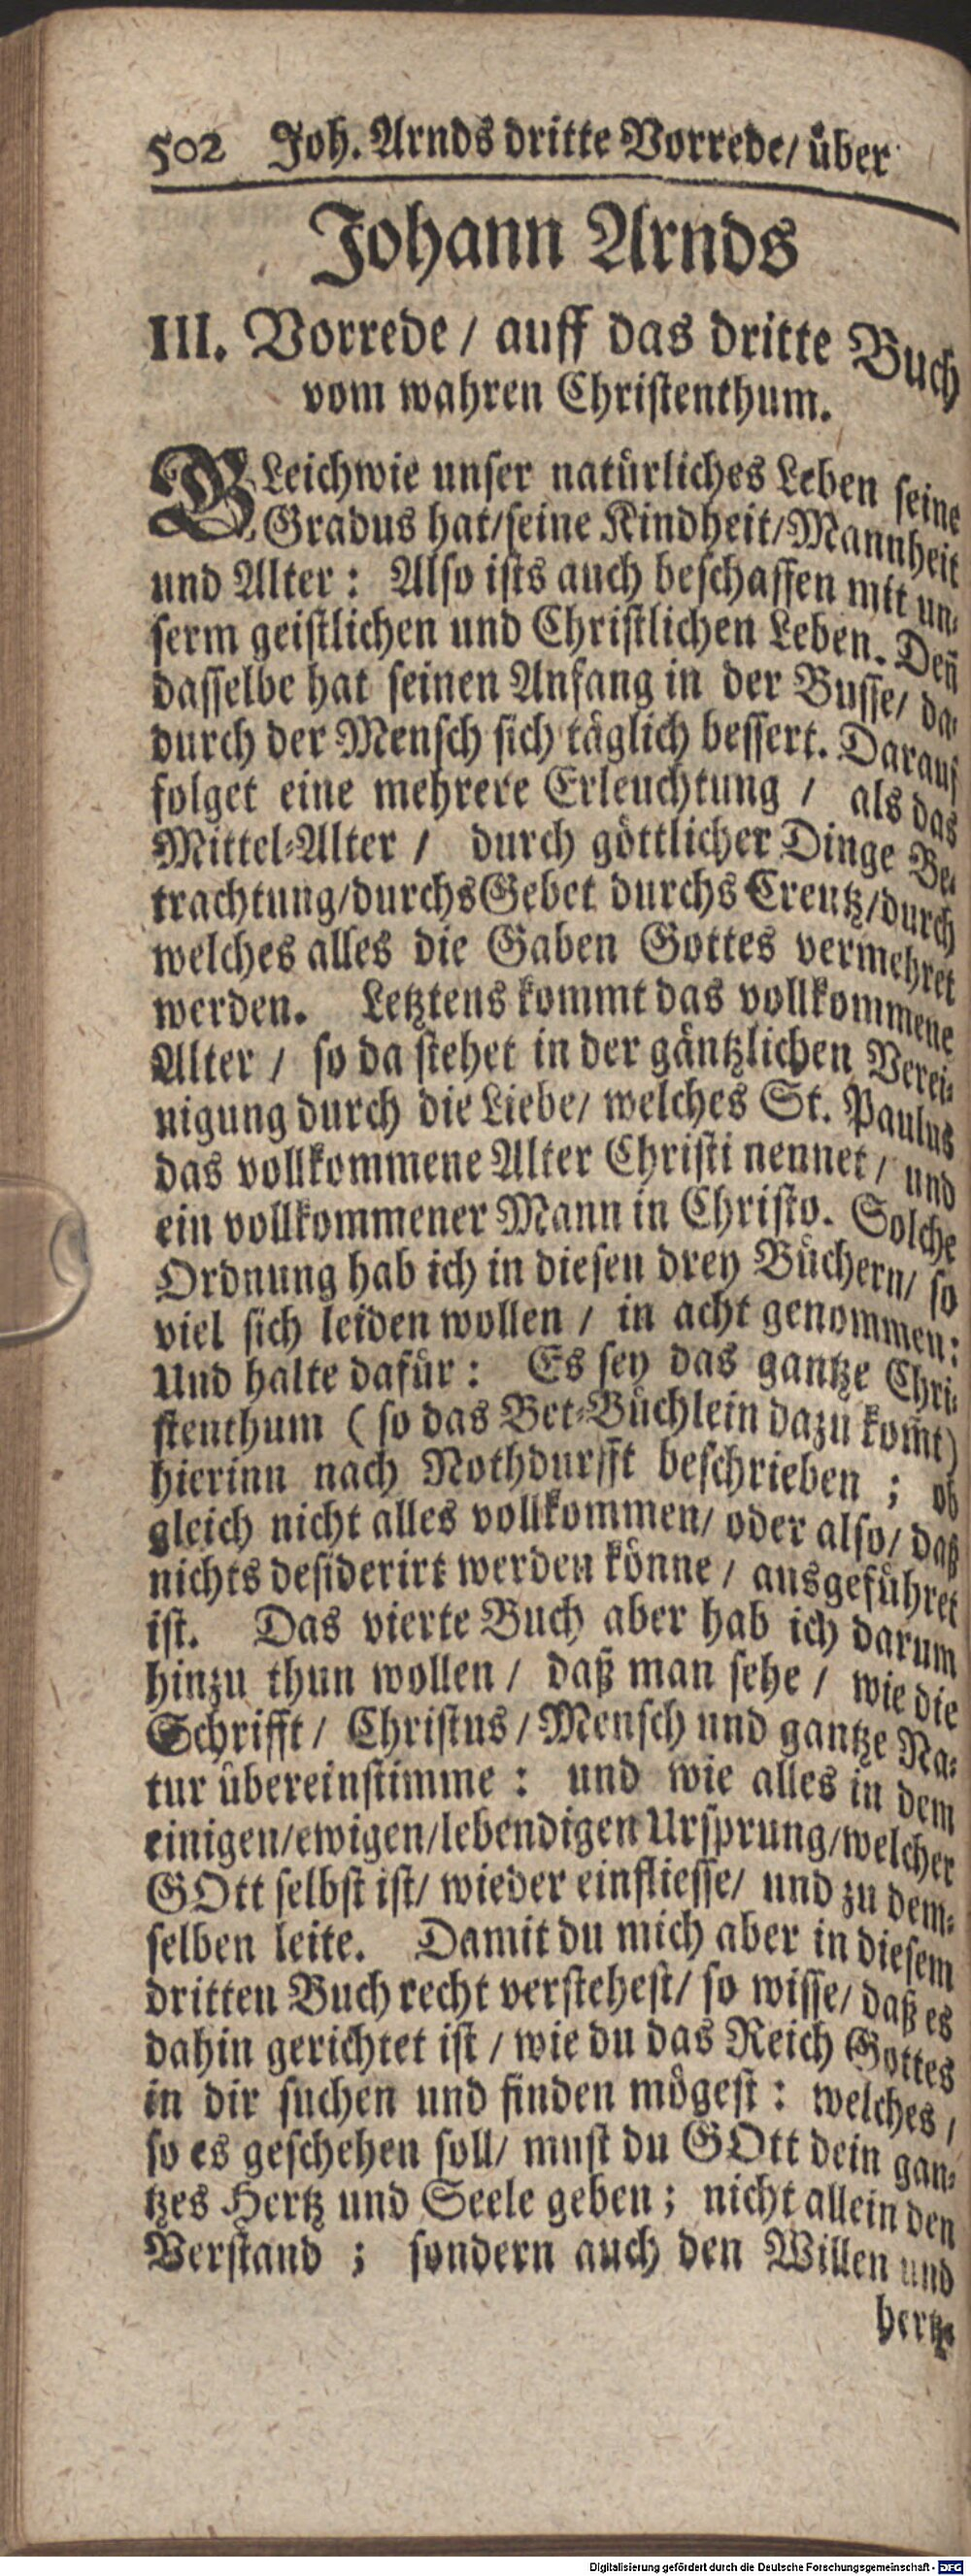 502 Joh. Arnds dritte Vorrede/ über
Johann Arnds
III. Vorrede / auff das dritte Buch
vom wahren Christenthum.
GLeichwie unser natürliches Leben seine
Gradus hat/seine Kindheit/Mannheit
und Alter: Also ists auch beschaffen mit un-
serm geistlichen und Christlichen Leben. Deñ
dasselbe hat seinen Anfang in der Busse/ da-
durch der Mensch sich täglich bessert. Darauf
folget eine mehrere Erleuchtung / als das
Mittel-Alter / durch göttlicher Dinge Be-
trachtung/durchs Gebet durchs Creutz/durch
welches alles die Gaben Gottes vermehret
werden. Letztens kommt das vollkommene
Alter / so da stehet in der gäntzlichen Verei-
nigung durch die Liebe/ welches St. Paulus
das vollkommene Alter Christi nennet / und
ein vollkommener Mann in Christo. Solche
Ordnung hab ich in diesen drey Büchern/ so
viel sich leiden wollen / in acht genommen:
Und halte dafür: Es sey das gantze Chri-
stenthum (so das Bet-Büchlein dazu kom̃t)
hierinn nach Nothdurfft beschrieben ; ob
gleich nicht alles vollkommen/ oder also/ daß
nichts desiderirt werden könne / ausgeführet
ist. Das vierte Buch aber hab ich darum
hinzu thun wollen / daß man sehe / wie die
Schrifft/ Christus / Mensch und gantze Na-
tur übereinstimme : und wie alles in dem
einigen/ewigen/lebendigen Ursprung/welcher
GOtt selbst ist/ wieder einfliesse/ und zu dem-
selben leite. Damit du mich aber in diesem
dritten Buch recht verstehest/ so wisse/ daß es
dahin gerichtet ist / wie du das Reich Gottes
in dir suchen und finden mögest : welches /
so es geschehen soll/ must du GOtt dein gan-
tzes Hertz und Seele geben ; nicht allein den
Verstand ; sondern auch den Willen und
hertz-
Digitalisierung gefördert durch die Deutsche Forschungsgemeinschaft - DFG